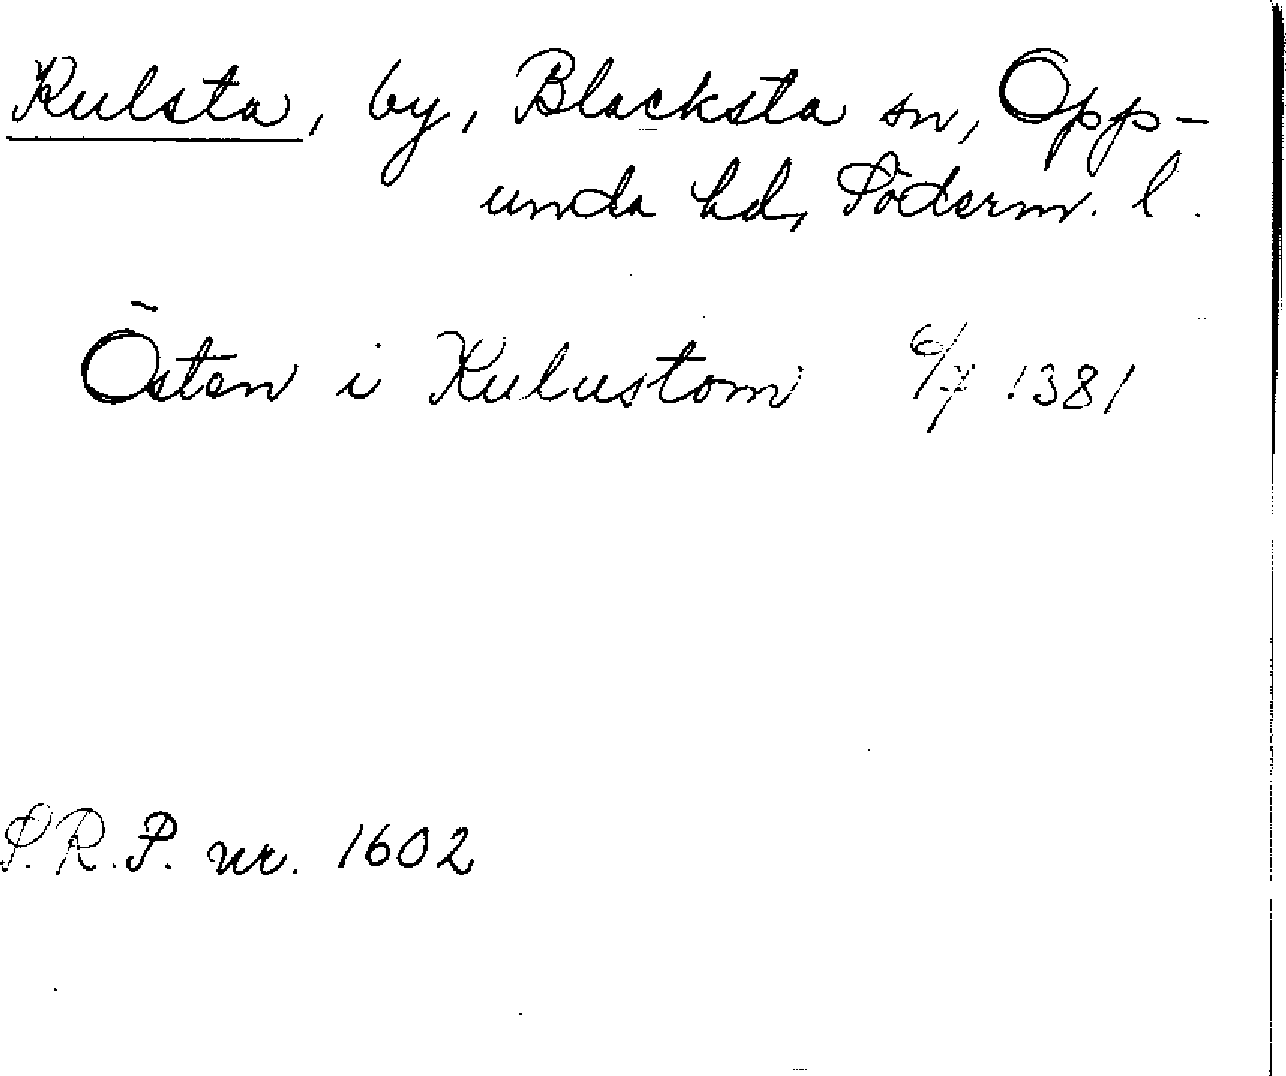 Kulsta, by, Blacksta sn, Opp-
unda hd, Söderm. l.
Östen i Kulustom 6/7 1381
S.R.P. nr. 1602